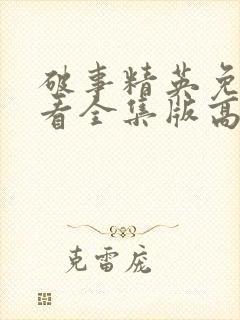 破事精英免
看全集版高
克雷庞